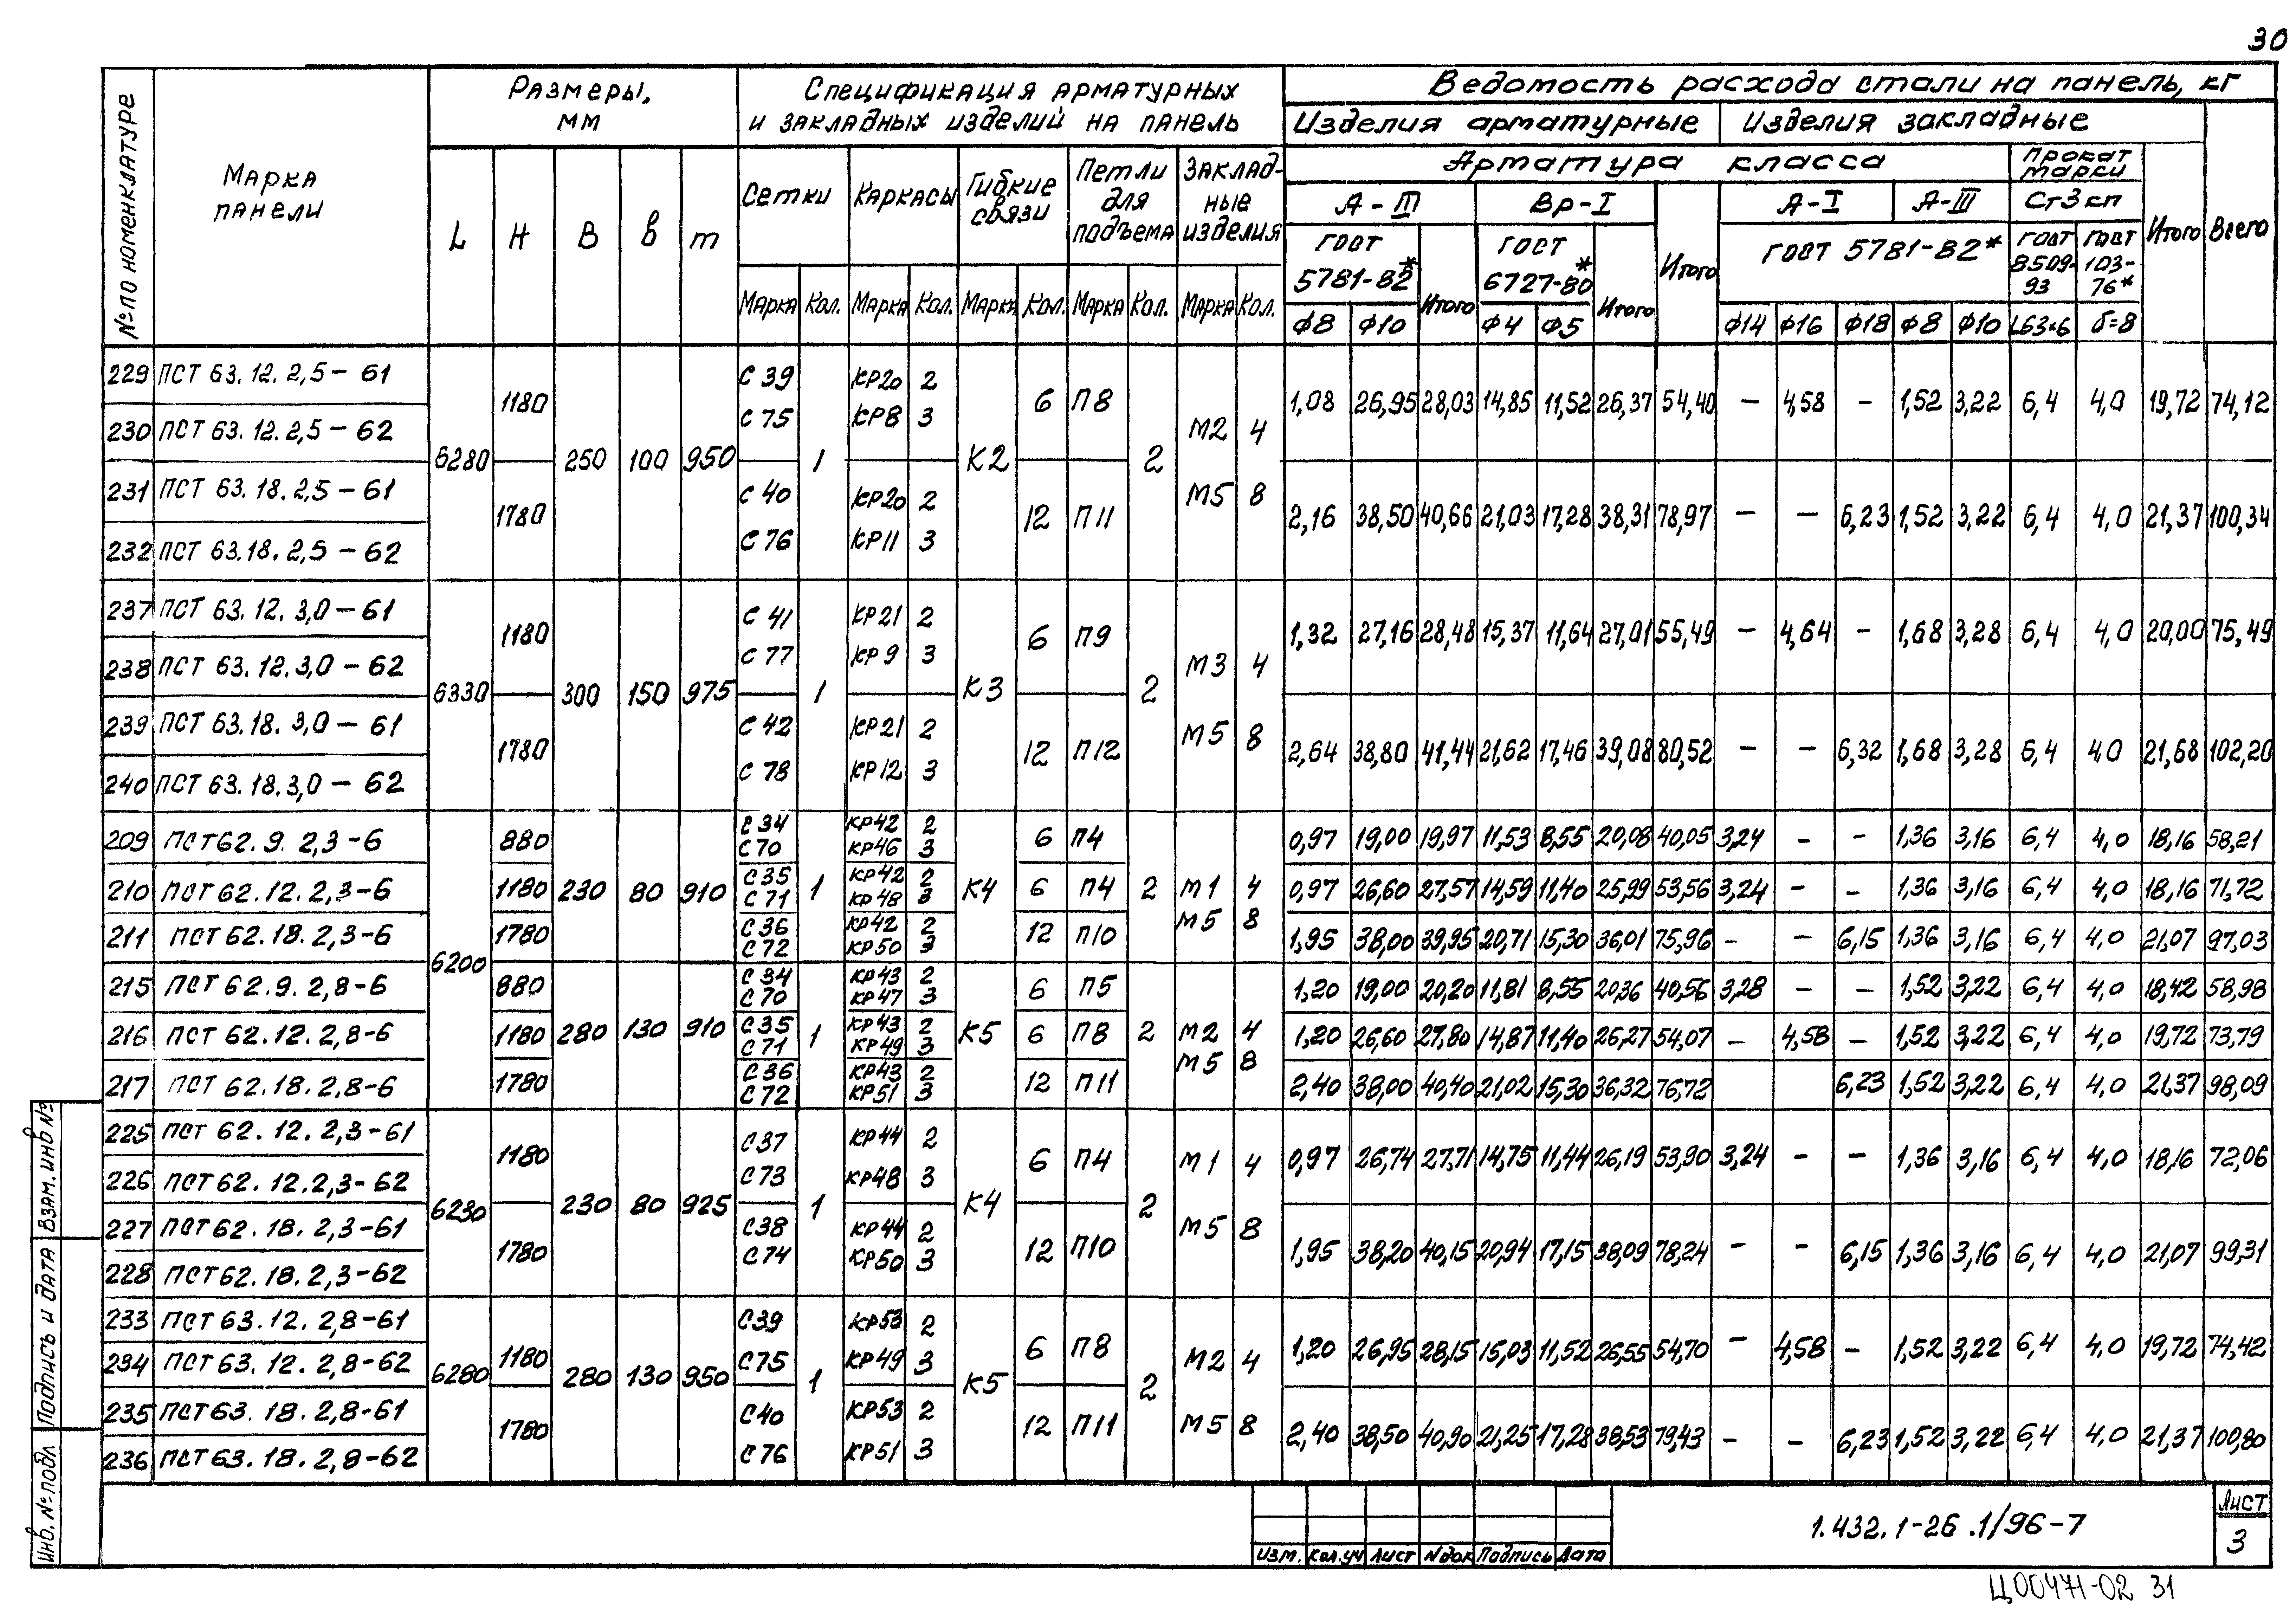 30
№ по номенклатуре
Марка панели
Размеры, мм
Спецификация арматурных и закладных изделий на панель
Ведомость расхода стали на панель, кг
Изделия арматурные Изделия закладные
Арматура класса Прокат марки
L H B в m
Сетки Каркасы Гибкие связи Петли для подъема Закладные изделия
А-III Вр-I Итого А-I А-III Ст3кп Итого Всего
ГОСТ 5781-82* Итого ГОСТ 6727-80* Итого ГОСТ 5781-82* ГОСТ 8509-93 ГОСТ 103-76*
Марка Кол. Марка Кол. Марка Кол. Марка Кол. Марка Кол.
Ф8 Ф10 Ф4 Ф5 Ф14 Ф16 Ф18 Ф8 Ф10 L63×6 δ=8
229 ПСТ 63.12.2,5-61
230 ПСТ 63.12.2,5-62
1180 С39 С75 КР20 2 КР8 3 6 П8 1,08 26,95 28,03 14,85 11,52 26,37 54,40 - 4,58 - 1,52 3,22 6,4 4,0 19,72 74,12
6280 250 100 950 1 К2 2 М2 4 М5 8
231 ПСТ 63.18.2,5-61
232 ПСТ 63.18.2,5-62
1780 С40 С76 КР20 2 КР11 3 12 П11 2,16 38,50 40,66 21,03 17,28 38,31 78,97 - - 6,23 1,52 3,22 6,4 4,0 21,37 100,34
237 ПСТ 63.12.3,0-61
238 ПСТ 63.12.3,0-62
1180 С41 С77 КР21 2 КР9 3 6 П9 1,32 27,16 28,48 15,37 11,64 27,01 55,49 - 4,64 - 1,68 3,28 6,4 4,0 20,00 75,49
6330 300 150 975 1 К3 2 М3 4 М5 8
239 ПСТ 63.18.3,0-61
240 ПСТ 63.18.3,0-62
1780 С42 С78 КР21 2 КР12 3 12 П12 2,64 38,80 41,44 21,62 17,46 39,08 80,52 - - 6,32 1,68 3,28 6,4 4,0 21,68 102,20
209 ПСТ 62.9.2,3-6 880 С34 С70 КР42 2 КР46 3 6 П4 0,97 19,00 19,97 11,53 8,55 20,08 40,05 3,24 - - 1,36 3,16 6,4 4,0 18,16 58,21
210 ПСТ 62.12.2,3-6 1180 230 80 910 С35 С71 1 КР42 2 КР48 3 К4 6 П4 2 М1 4 М5 8 0,97 26,60 27,57 14,59 11,40 25,99 53,56 3,24 - - 1,36 3,16 6,4 4,0 18,16 71,72
211 ПСТ 62.18.2,3-6 1780 С36 С72 КР42 2 КР50 3 12 П10 1,95 38,00 39,95 20,71 15,30 36,01 75,96 - - 6,15 1,36 3,16 6,4 4,0 21,07 97,03
6200
215 ПСТ 62.9.2,8-6 880 С34 С70 КР43 2 КР47 3 6 П5 1,20 19,00 20,20 11,81 8,55 20,36 40,56 3,28 - - 1,52 3,22 6,4 4,0 18,42 58,98
216 ПСТ 62.12.2,8-6 1180 280 130 910 С35 С71 1 КР43 2 КР49 3 К5 6 П8 2 М2 4 М5 8 1,20 26,60 27,80 14,87 11,40 26,27 54,07 - 4,58 - 1,52 3,22 6,4 4,0 19,72 73,79
217 ПСТ 62.18.2,8-6 1780 С36 С72 КР43 2 КР51 3 12 П11 2,40 38,00 40,40 21,02 15,30 36,32 76,72 6,23 1,52 3,22 6,4 4,0 21,37 98,09
225 ПСТ 62.12.2,3-61
226 ПСТ 62.12.2,3-62
1180 С37 С73 КР44 2 КР48 3 6 П4 0,97 26,74 27,71 14,75 11,44 26,19 53,90 3,24 - - 1,36 3,16 6,4 4,0 18,16 72,06
6230 230 80 925 1 К4 2 М1 4 М5 8
227 ПСТ 62.18.2,3-61
228 ПСТ 62.18.2,3-62
1780 С38 С74 КР44 2 КР50 3 12 П10 1,95 38,20 40,15 20,94 17,15 38,09 78,24 - - 6,15 1,36 3,16 6,4 4,0 21,07 99,31
233 ПСТ 63.12.2,8-61
234 ПСТ 63.12.2,8-62
1180 С39 С75 КР53 2 КР49 3 6 П8 1,20 26,95 28,15 15,03 11,52 26,55 54,70 - 4,58 - 1,52 3,22 6,4 4,0 19,72 74,42
6280 280 130 950 1 К5 2 М2 4 М5 8
235 ПСТ 63.18.2,8-61
236 ПСТ 63.18.2,8-62
1780 С40 С76 КР53 2 КР51 3 12 П11 2,40 38,50 40,90 21,25 17,28 38,53 79,43 - - 6,23 1,52 3,22 6,4 4,0 21,37 100,80
Взам. инв №
Подпись и дата
Инв. № подл
Изм. Кол.уч Лист Nдок Подпись Дата
1.432.1-26.1/96-7
Лист
3
Ц00471-02 31